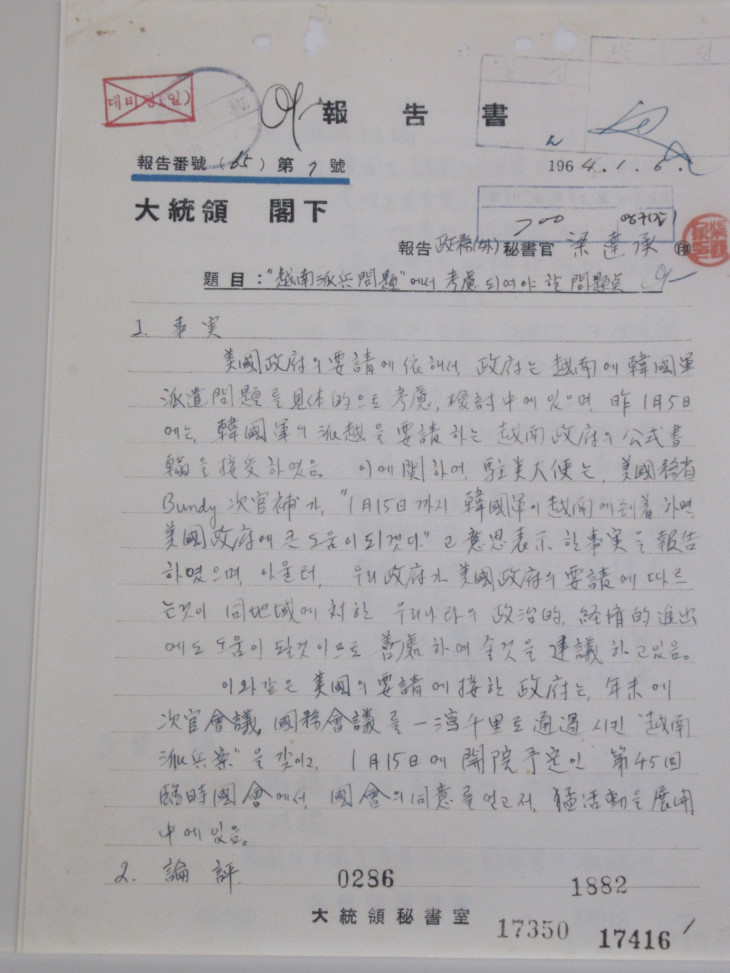 대비정(일)
報告書
報告番號 (65) 第 7 號
1964. 1. 6.
大統領 閣下
700
報告 政務(外) 秘書官 梁達承 印
題目 : "越南派兵問題"에서 考慮되여야 할 問題点
1. 事実
美國政府의 要請에 依해서, 政府는 越南에 韓國軍
派遣問題를 具体的으로 考慮, 檢討中에 있으며, 昨 1月5日
에는, 韓國軍의 派越을 要請하는 越南政府의 公式書
翰을 接受하였음. 이에 関하여, 駐美大使는, 美國務省
Bundy 次官補가, "1月15日까지 韓國軍이 越南에 到着하면
美國政府에 큰 도움이 되겠다."고 意思表示한 事実을 報告
하였으며, 아울러, 우리 政府가 美國政府의 要請에 따르
는것이 同地域에 対한 우리나라의 政治的, 経済的 進出
에도 도움이 될것이므로 善處하여 줄것을 建議하고있음.
이와같은 美國의 要請에 接한 政府는, 年末에
次官會議, 國務會議를 一瀉千里로 通過시킨 "越南
派兵案"을 갖이고, 1月15日에 開院予定인 第45回
臨時國會에서, 國會의 同意를 얻고저, 猛活動을 展開
中에 있음.
2. 論評.
0286
1882
大統領秘書室
17350
17416